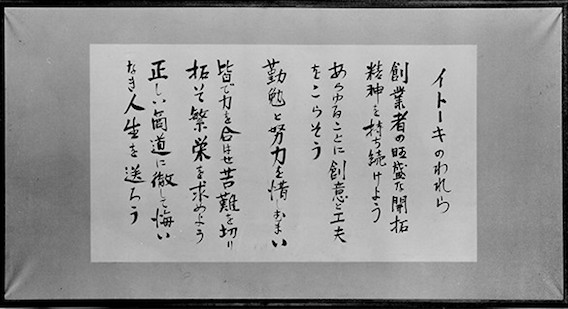 イトーキのわれら
創業者の旺盛な開拓
精神を持ち続けよう
あらゆることに創意と工夫
をこらそう
勤勉と努力を惜しむまい
皆で力を合はせ苦難を切り
拓き繁栄を求めよう
正しい商道に徹して悔い
なき人生を送ろう